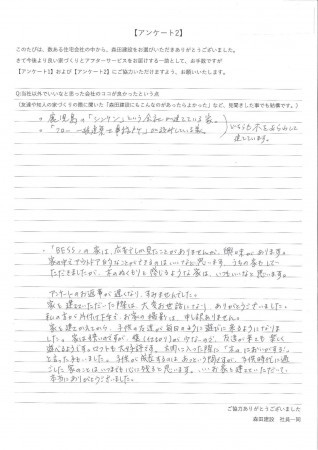 【アンケート2】
このたびは、数ある住宅会社の中から、森田建設をお選びいただきありがとうございました。
さて今後より良い家づくりとアフターサービスをお届けする一助として、お手数ですが
【アンケート1】および【アンケート2】にご協力いただけますよう、お願いいたします。
Q:当社以外でいいなと思った会社のココが良かったという点
(友達や知人の家づくりの際に聞いた「森田建設にもこんなのがあったらよかった」など、見聞きした事でも結構です。)
。鹿児島の「シンケン」という会社が建てている家。
。「フロー 一級建築士事務所」が設計している家。
いづれも木をあらわしで
建てています。
・「BESS」の家は、広告でしか見たことがありませんが、興味があります。
家の中でアウトドア的なことができるのはいいなと思います。うちの家もして
いただきましたが、木のぬくもりを感じるような家は、いいなと思います。
アンケートのお返事が遅くなり、すみませんでした。
家を建てていただいた際は、大変お世話になり、ありがとうございました。
私の方が片付け下手で、お家の撮影は、申し訳ありません。
家を建ててから、子供の友達が毎日のように遊びに来るようになりま
した。家は狭いのですが、壁(仕切り)が少ないので、友達が来ても楽しく
遊べるようです。ロフトも大好評です。玄関に入った際に「木のにおいがする」
と言った子もいました。子供が成長するのは、あっという間ですが、子供時代に過
ごした家のことはいつまでも心に残ると思います。いいお家を建てていただいて
本当にありがとうございました。
ご協力ありがとうございました
森田建設 社員一同